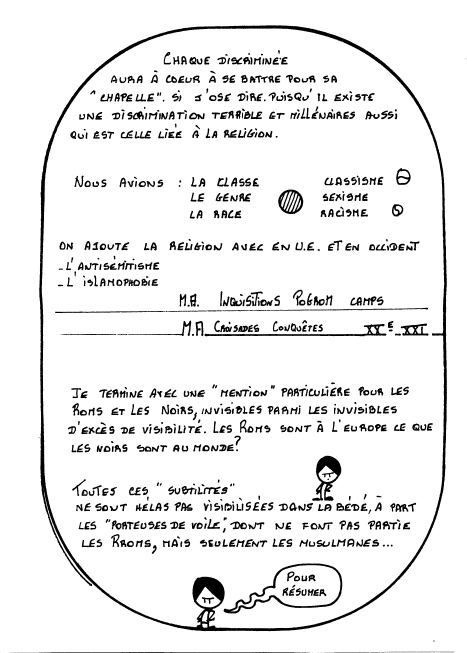 CHAQUE DISCRIMINÉE
AURA À COEUR À SE BATTRE POUR SA
"CHAPELLE". SI J'OSE DIRE. PUISQU'IL EXISTE
UNE DISCRIMINATION TERRIBLE ET MILLÉNAIRES AUSSI
QUI EST CELLE LIÉE À LA RELIGION.
NOUS AVIONS : LA CLASSE CLASSISME
LE GENRE SEXISME
LA RACE RACISME
ON AJOUTE LA RELIGION AVEC EN U.E. ET EN OCCIDENT
- L'ANTISÉMITISME
- L'ISLAMOPHOBIE
M.A. INQUISITIONS POGROM CAMPS
M.A CROISADES CONQUÊTES XXE XXI
JE TERMINE AVEC UNE "MENTION" PARTICULIÈRE POUR LES
ROMS ET LES NOIRS, INVISIBLES PARMI LES INVISIBLES
D'EXCÈS DE VISIBILITÉ. LES ROMS SONT À L'EUROPE CE QUE
LES NOIRS SONT AU MONDE?
TOUTES CES "SUBTILITÉS"
NE SONT HÉLAS PAS VISIBILISÉES DANS LA BÉDÉ, À PART
LES "PORTEUSES DE VOILE", DONT NE FONT PAS PARTIE
LES RROMS, MAIS SEULEMENT LES MUSULMANES...
POUR
RÉSUMER